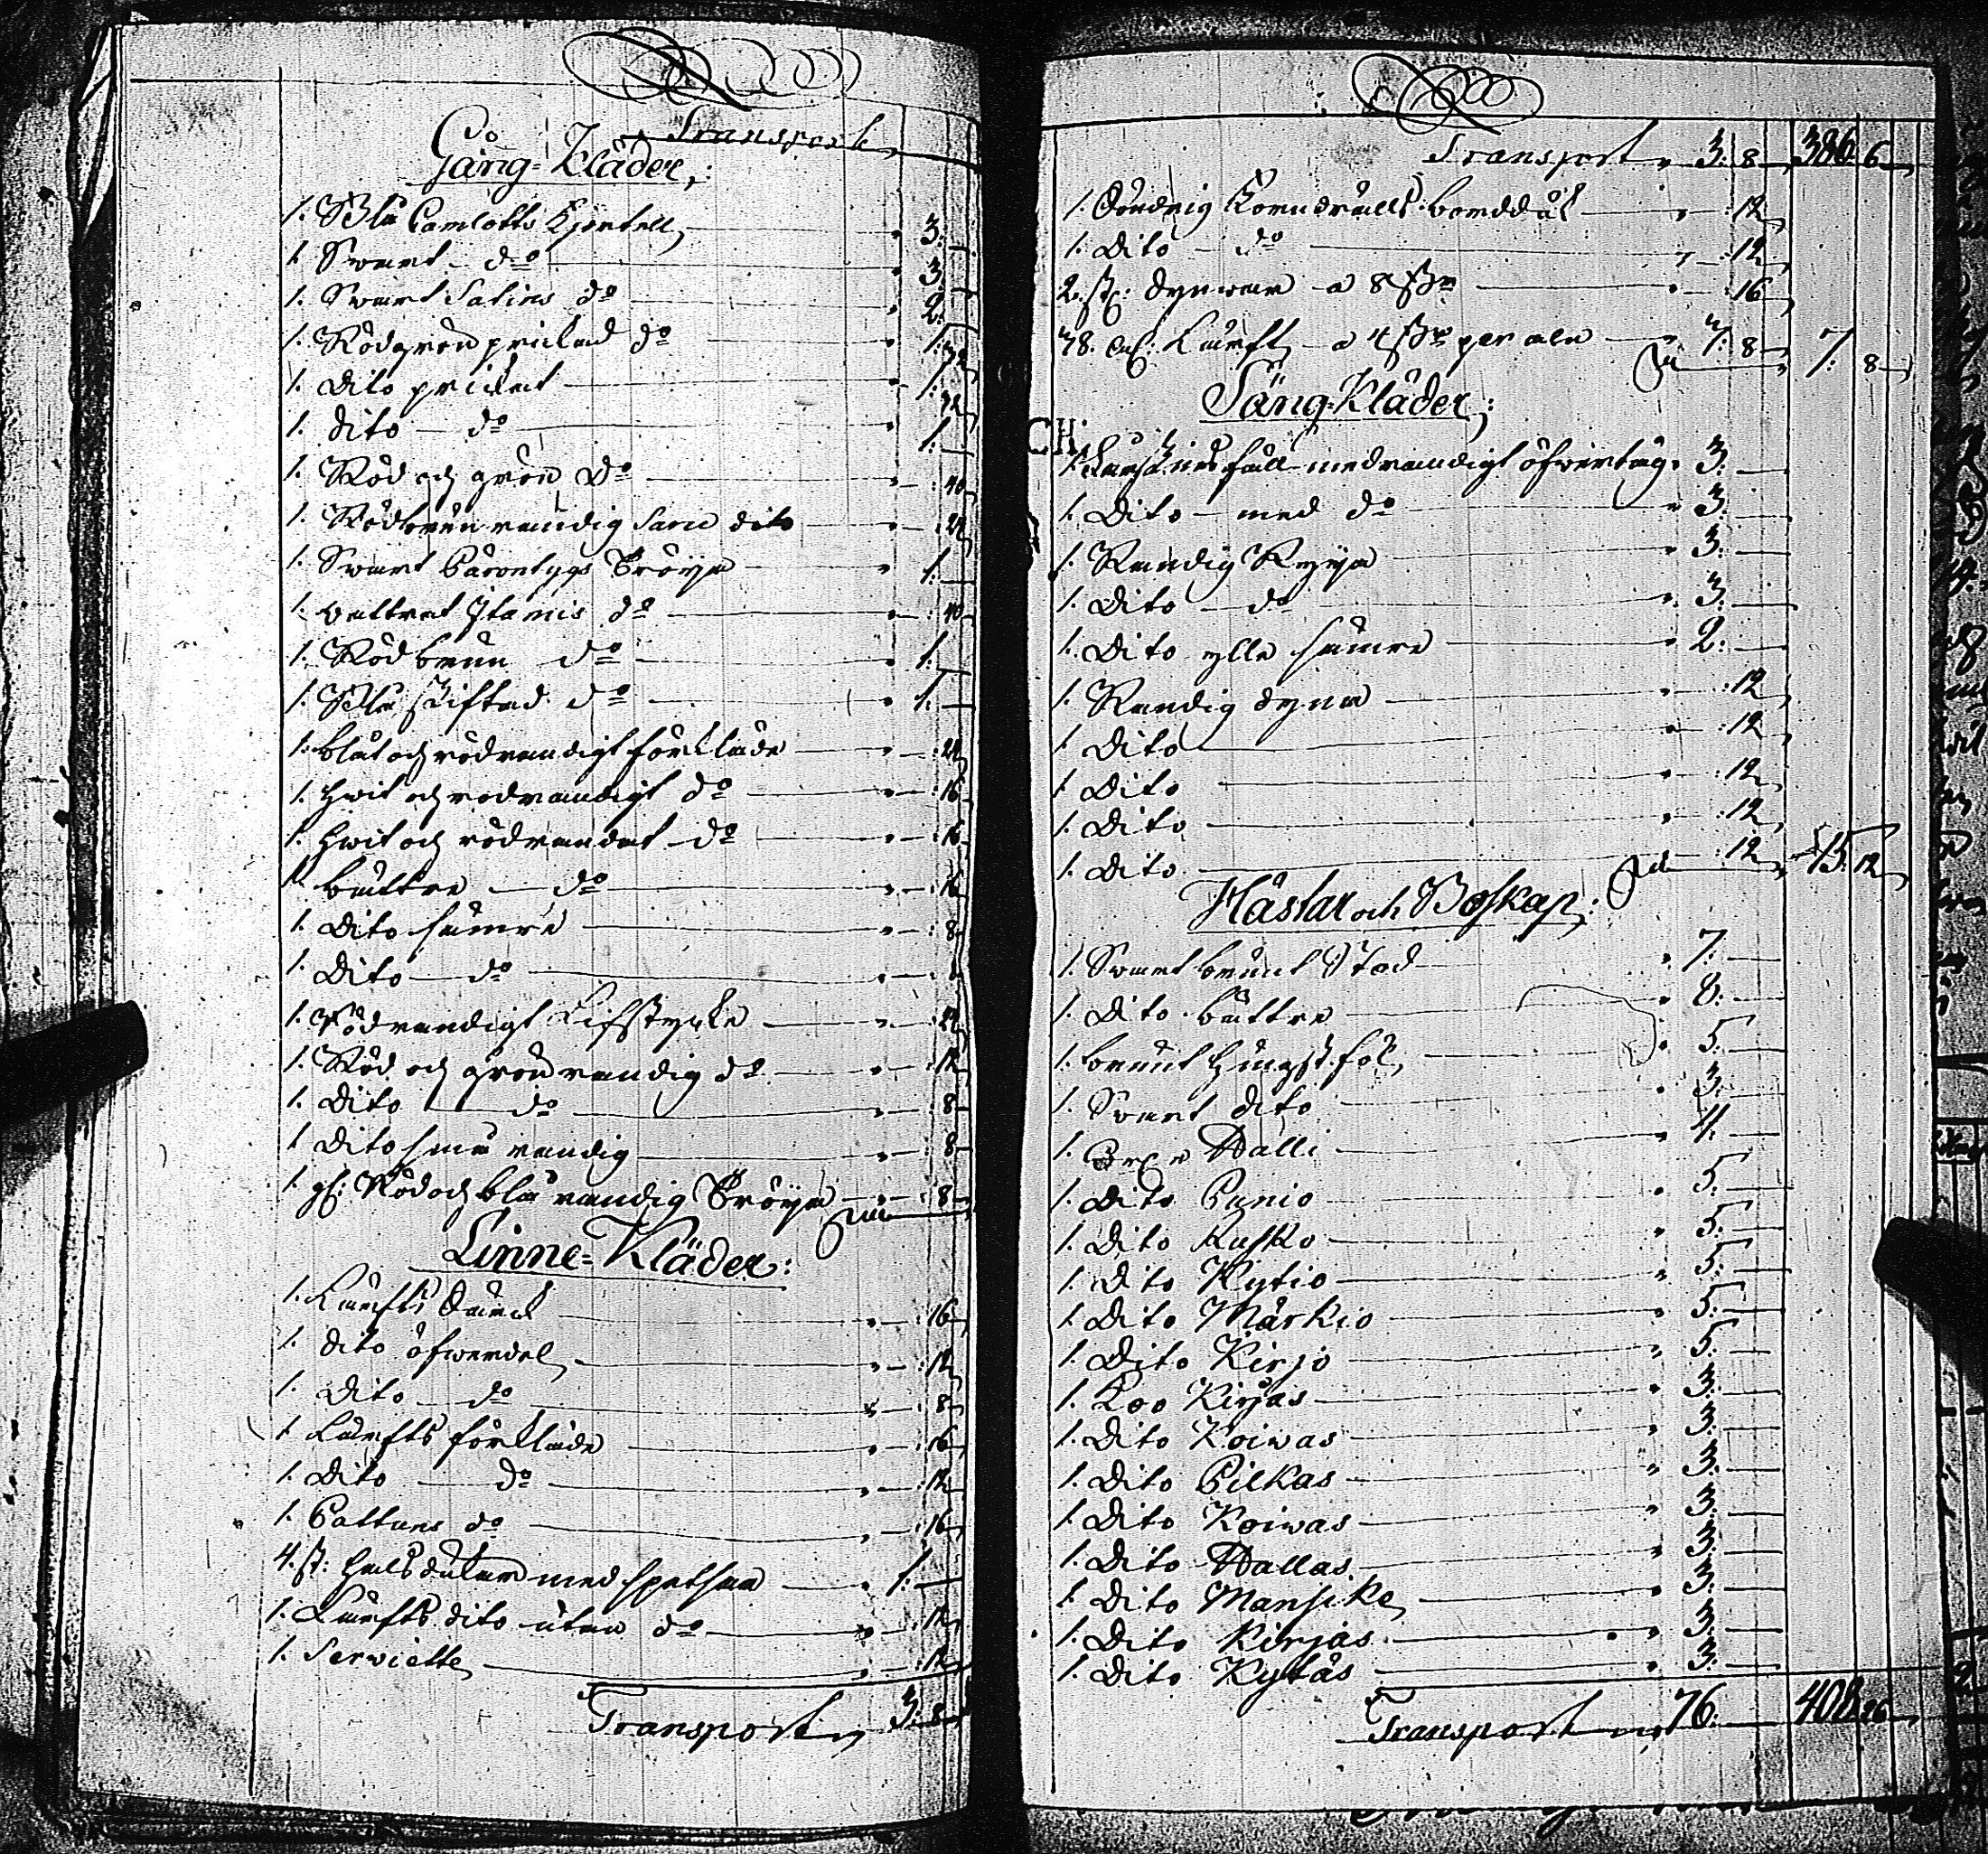 Transport
Gång=Kläder,:
1. Blå Camlotts Kjortell, 3:
1. Swart d:o 3:
1. Swart Satins d:o 2:
1. Rödgrön prickad d:o 1: 32
1. Dito prickat 1: 32
1. dito d:o 1:
1. Röd och grön d:o :40
1. Rödbrun randig dito :24
1. Swart Tröya 1:
1. d:o :40
1. Rödbrun d:o 1:
1. Blå skiftad d:o 1:
1. blåt och rödrandigt förkläde :24
1. hwit och rödrandigt d:o :16
1. hwit och rödrandat d:o :16
1. bättre d:o :16
1. Dito sämre :8
1. Dito d:o
1. Rödrandigt Lifstycke :24
1. Röd och grönrandig d:o :12
1. Dito d:o :8
1 Dito små randig :8
1 gl: Röd och blå randig Tröya :8
Linne=Kläder:
1. Lärfts :16
1. dito öfwerdel :12
1. Dito d:o :8
1 Lärfts förkläde :16
1. Dito d:o :12
1. Cattuns d:o :16
4. st: halsdukar med spetsar 1:
1. Lärfts dito utan d:o :12
1. Serviette :12
Transport 3: 8
Transport 3: 8 386: 6
1. borddúk :12
1. Dito d:o :12
2. st: dynwar a 8 :16
78. aln: Lärft a 4 per aln 7: 8 7: 8
Säng=Kläder;
1. fäll med randigt öfwertåg 3:
1. Dito med d:o 3:
1. Randig Ryya 3:
1. Dito d:o 3:
1. Dito ylle sämre 2:
1. Randig dyna :12
1 Dito :12
1 Dito :12
1. Dito :12
1. Dito :12 15: 12
Hästar och Boskap:
1. Swartbrunt Stod 7:
1. Dito bättre 8:
1. brunt hingst föl 5:
1. Swart dito 3:
1. Oxe Halli 4:
1. Dito Punio 5:
1. Dito Rusko 5:
1. Dito Kytio 5:
1. Dito Märkio 5:
1. Dito Kirjo 5:
1. Koo Kirjas 3:
1. Dito Koiwas 3:
1. Dito Pilkas 3:
1. Dito Koiwas 3:
1. Dito Hallas 3:
1. Dito Mansike 3:
1. Dito Kirjas 3:
1. Dito Kytås 3:
Transport 76: 408: 26